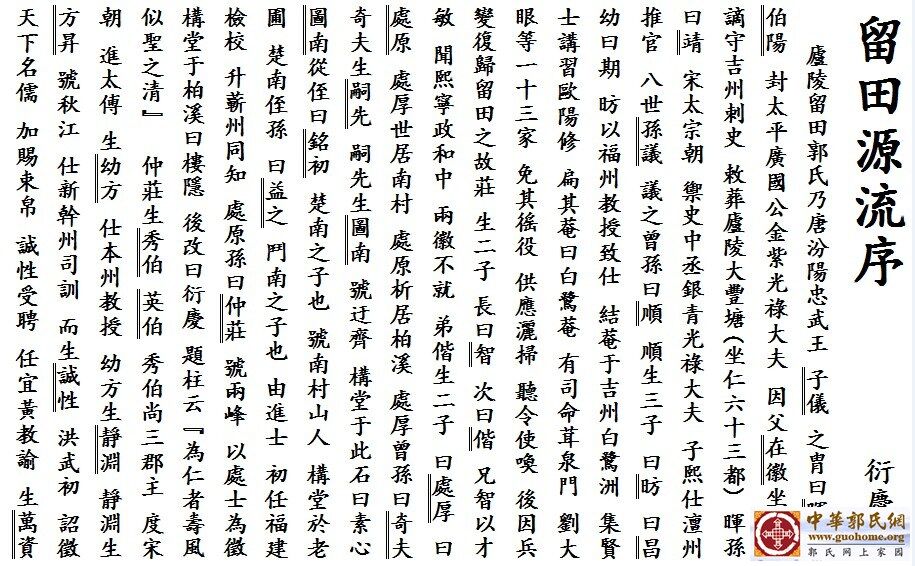 留田源流序
衍慶
廬陵留田郭氏乃唐汾陽忠武王 子儀 之胄曰
伯陽 封太平廣國公金紫光祿大夫 因父在徽坐
謫守吉州刺史 敕葬廬陵大豐塘(坐仁六十三都) 暉孫
曰靖 宋太宗朝 禦史中丞銀青光祿大夫 子熙仕澶州
推官 八世孫議 議之曾孫曰順 順生三子 曰昉 曰昌
幼曰期 昉以福州教授致仕 結菴于吉州白鷺洲 集賢
士講習歐陽修 扁其菴曰白鷺菴 有司命茸泉門 劉大
眼等一十三家 免其徭役 供應灑掃 聽令使喚 後因兵
變復歸留田之故莊 生二子 長曰智 次曰偕 兄智以才
敏 聞熙寧政和中 兩徵不就 弟偕生二子 曰處厚 曰
處原 處厚世居南村 處原析居柏溪 處厚曾孫曰奇夫
奇夫生嗣先 嗣先生圖南 號迂齊 構堂于此石曰素心
圖南從侄曰銘初 楚南之子也 號南村山人 構堂於老
圃 楚南侄孫 曰益之 鬥南之子也 由進士 初任福建
檢校 升蘄州同知 處原孫曰仲莊 號兩峰 以處士為徵
構堂于柏溪曰樓隱 後改曰衍慶 題柱云『為仁者壽風
似聖之清』 仲莊生秀伯 英伯 秀伯尚三郡主 度宋
朝 進太傅 生幼方 仕本州教授 幼方生靜淵 靜淵生
方昇 號秋江 仕新幹州司訓 而生誠性 洪武初 詔徵
天下名儒 加賜束帛 誠性受聘 任宜黃教諭 生萬資
中華郭氏網
www.guohome.org
郭氏网上家园